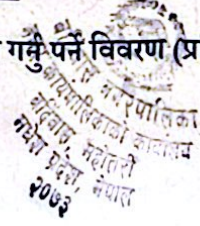 गर्नु पर्ने विवरण (प्र
नगरपालिका
नगर कार्यपालिकाको कार्यालय
बर्दिबास, महोत्तरी
मधेश प्रदेश, नेपाल
२०७३